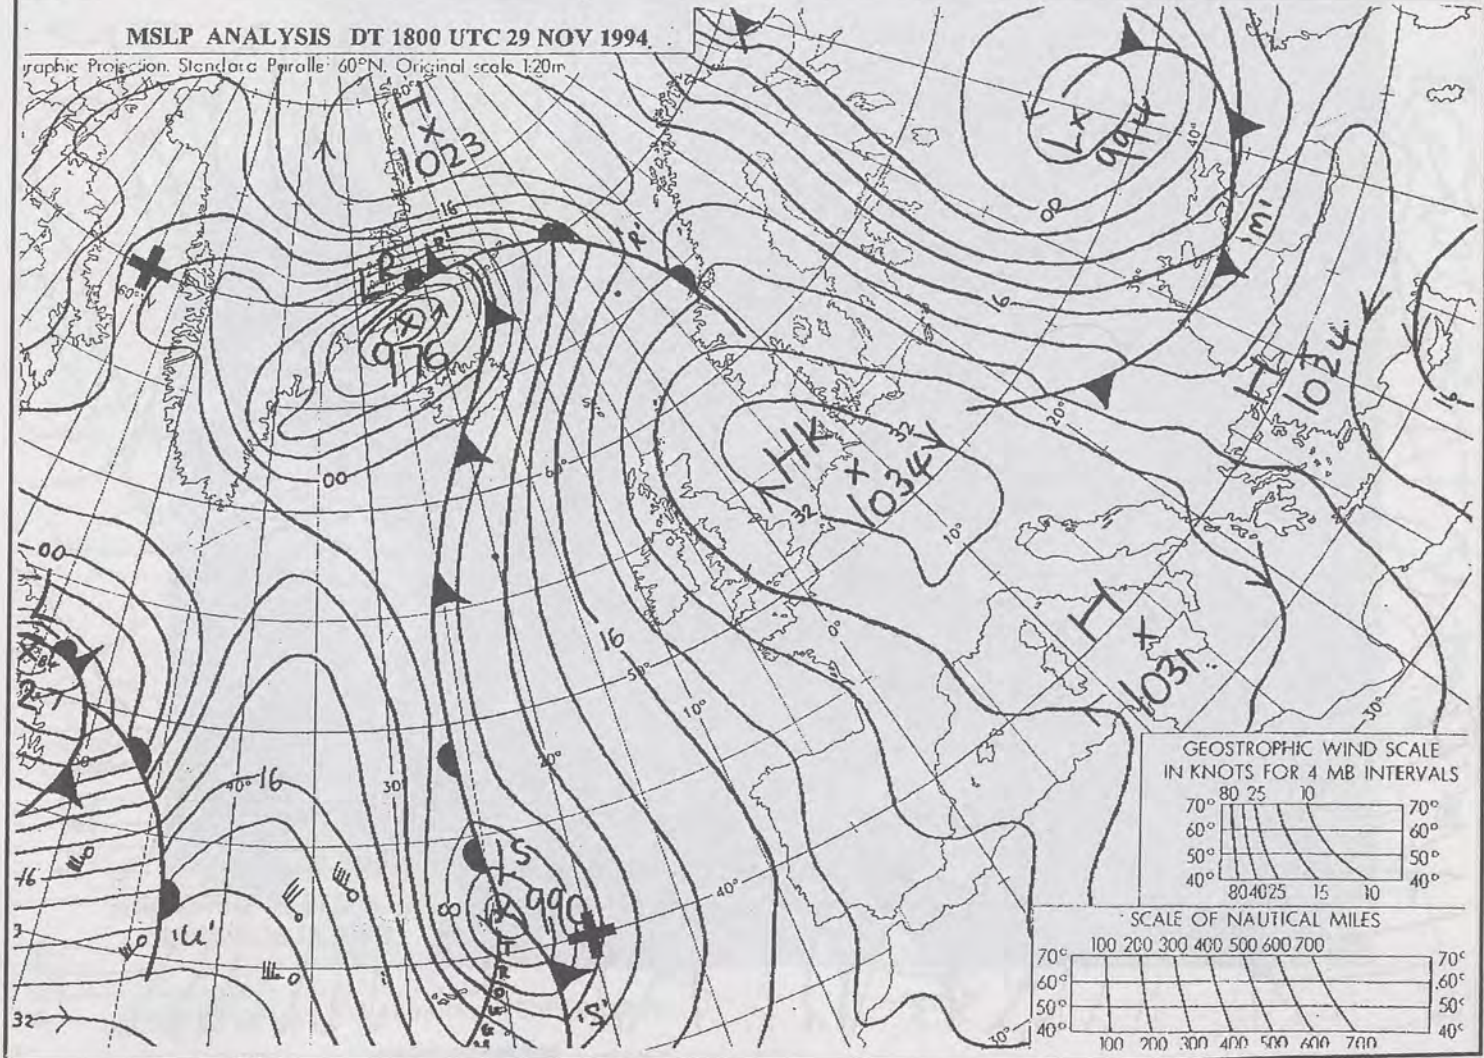 MSLP ANALYSIS DT 1800 UTC 29 NOV 1994
raphic Projection. Standard Parallel 60°N. Original scale 1:20m
80°
H
1023
16
LR
'R'
976
60°
00
'R'
L
994
40°
00
'M'
16
H
1024
16
20°
HK
32
1034
32
10°
H
1031
30°
50°
60°
00
16
50°
0°
10°
20°
30°
40°
16
40°
LS
990
00
TROUGH
'S'
'U'
16
32
30°
GEOSTROPHIC WIND SCALE
IN KNOTS FOR 4 MB INTERVALS
80 25 10
70° 70°
60° 60°
50° 50°
40° 40°
80 40 25 15 10
SCALE OF NAUTICAL MILES
100 200 300 400 500 600 700
70° 70°
60° 60°
50° 50°
40° 40°
100 200 300 400 500 600 700